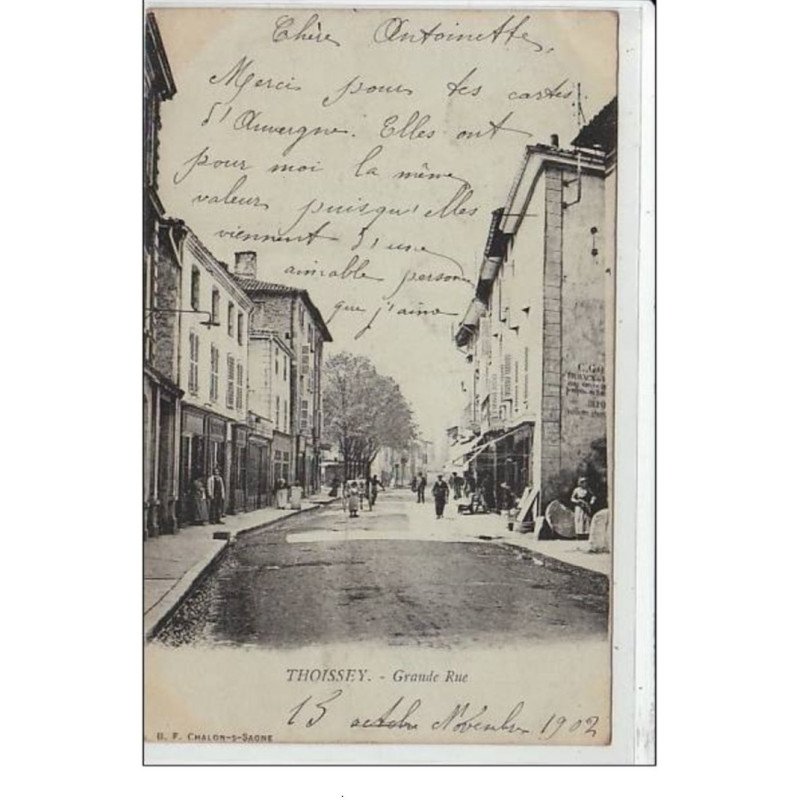 Chère Antoinette,
Merci pour tes cartes
d'Auvergne. Elles ont
pour moi la même
valeur puisqu'elles
viennent d'une
aimable personne
que j'aime
C. GO
THOISSEY. - Grande Rue
15 octobre Novembre 1902
B. F. CHALON-S-SAONE